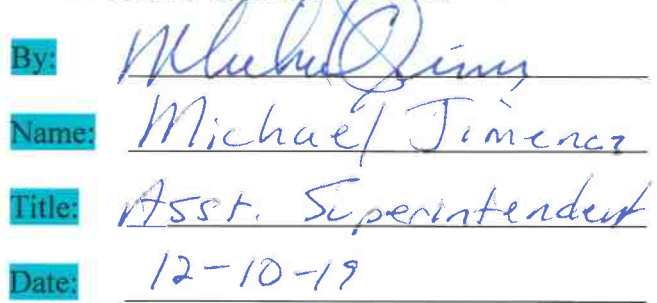 By:
Name: Michael Jimenez
Title: Asst. Superintendent
Date: 12-10-19